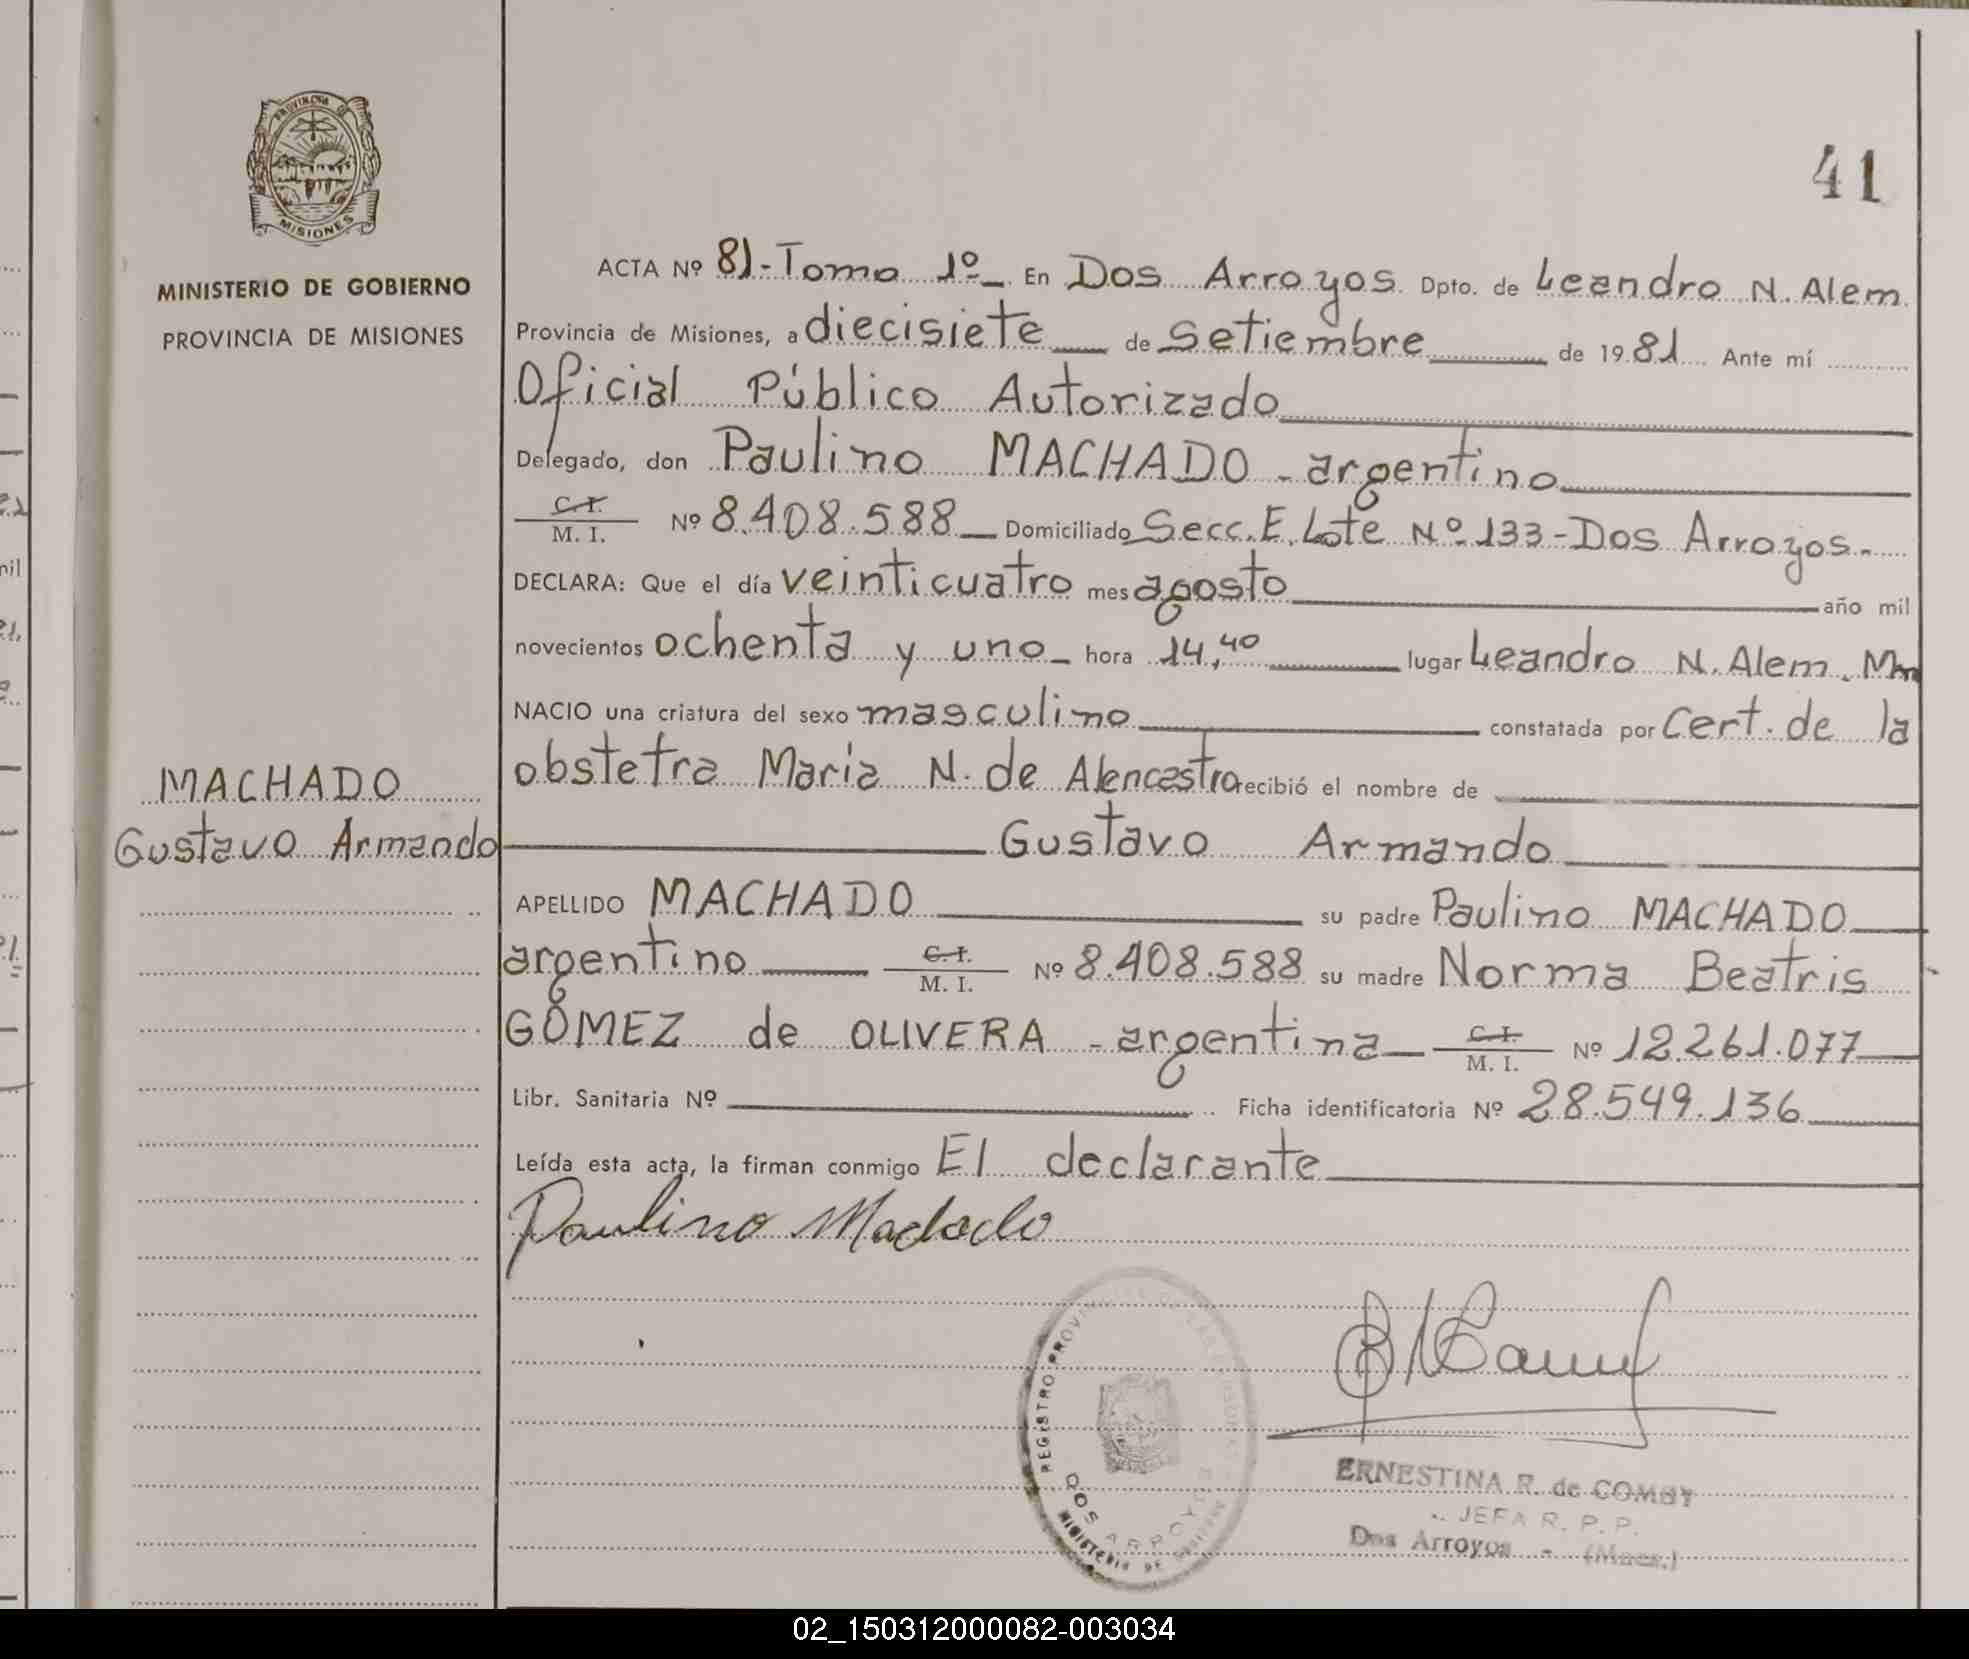 PROVINCIA DE
MISIONES
MINISTERIO DE GOBIERNO
PROVINCIA DE MISIONES
MACHADO
Gustavo Armando
41
ACTA Nº 81-Tomo 1º En Dos Arroyos Dpto. de Leandro N. Alem
Provincia de Misiones, a diecisiete de Setiembre de 1981 Ante mí
Oficial Público Autorizado
Delegado, don Paulino MACHADO - argentino
C. I.
M. I. Nº 8.408.588 Domiciliado Secc. E. Lote Nº 133 - Dos Arroyos.-
DECLARA: Que el día veinticuatro mes agosto año mil
novecientos ochenta y uno hora 14,40 lugar Leandro N. Alem. Mnes
NACIO una criatura del sexo masculino constatada por Cert. de la
obstetra Maria N. de Alencastro recibió el nombre de
Gustavo Armando
APELLIDO MACHADO su padre Paulino MACHADO
argentino C. I. M. I. Nº 8.408.588 su madre Norma Beatris
GÓMEZ de OLIVERA - argentina C. I. M. I. Nº 12.261.077
Libr. Sanitaria Nº Ficha identificatoria Nº 28.549.136
Leída esta acta, la firman conmigo El declarante
Paulino Machado
REGISTRO PROVINCIAL DE LAS PERSONAS
DOS ARROYOS
MINISTERIO DE GOBIERNO
ERNESTINA R. de COMBY
JEFA R. P. P.
Dos Arroyos - (Mnes.)
02_150312000082-003034